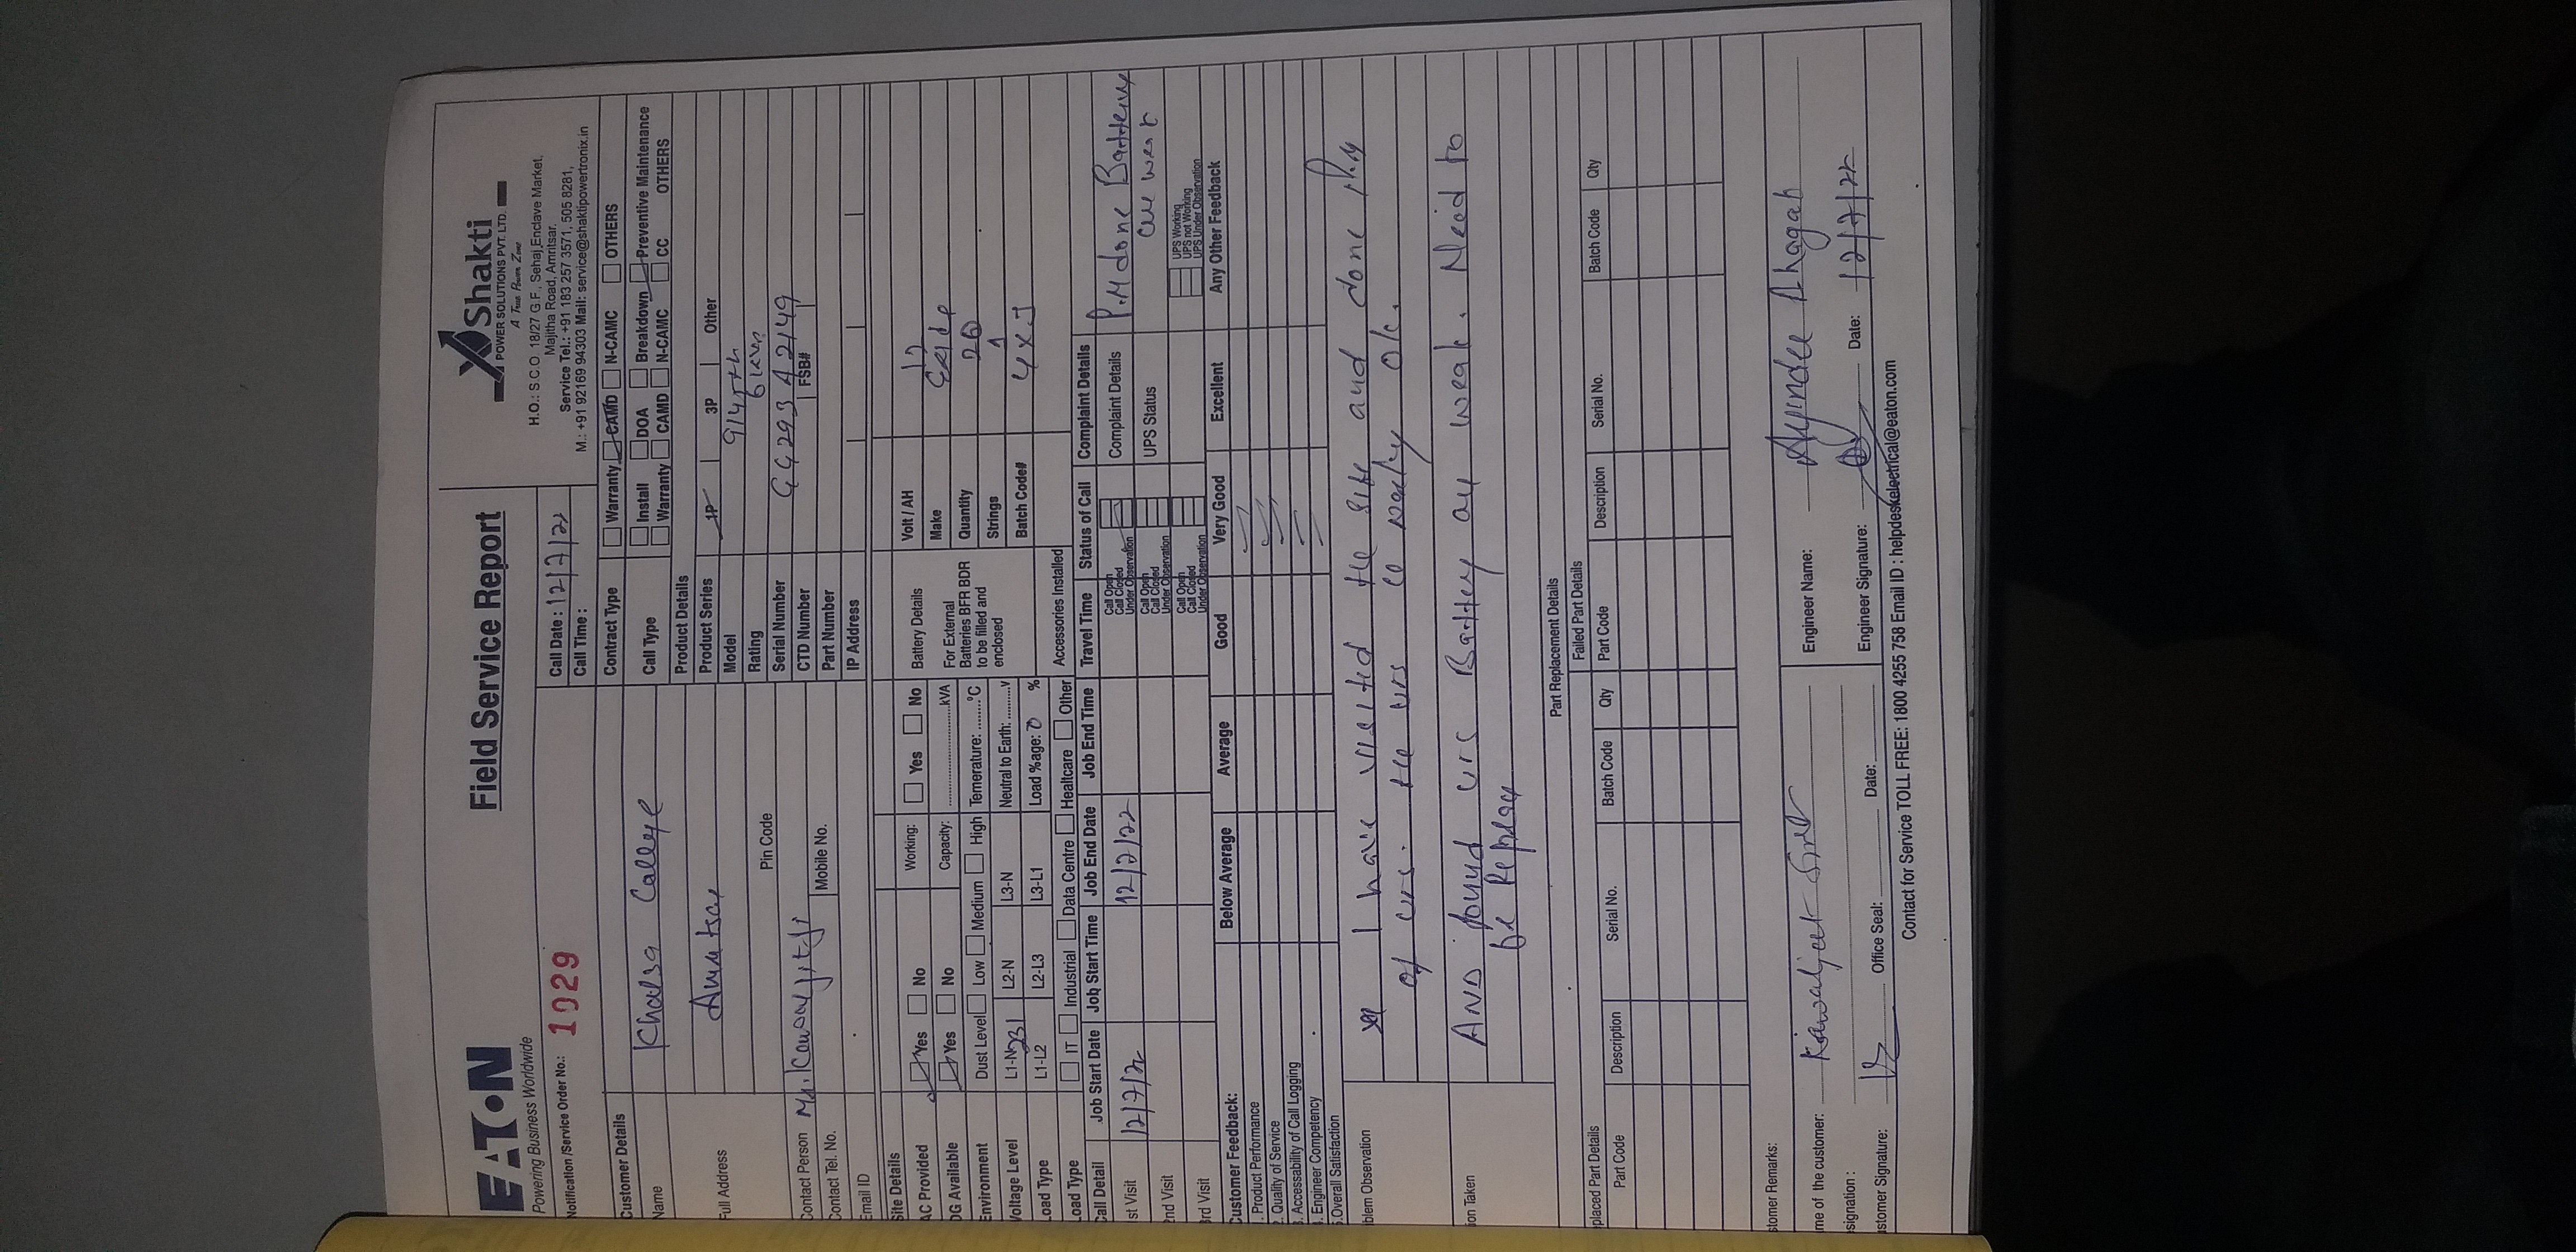 EATON
Powering Business Worldwide
Field Service Report
Shakti
POWER SOLUTIONS PVT. LTD.
A True Power Zone
H.O.: S.C.O. 18/27 G.F., Sehaj Enclave Market,
Majitha Road, Amritsar.
Service Tel.: +91 183 257 3571, 505 8281,
M.: +91 92169 94303 Mail: service@shaktipowertronix.in
Notification /Service Order No.: 1029
Call Date : 12/7/22
Call Time :
Customer Details
Name Khalsa College
Full Address Amritsar
Pin Code
Contact Person Mr.
Contact Tel. No. Mobile No.
Email ID
Contract Type Warranty CAMD N-CAMC OTHERS
Call Type Install DOA Breakdown Preventive Maintenance
Warranty CAMD N-CAMC CC OTHERS
Product Details
Product Series 1P 3P Other
Model
Rating 6 kva
Serial Number GG293 A 2149
CTD Number FSB#
Part Number
IP Address
Site Details
AC Provided Yes No Working: Yes No
DG Available Yes No Capacity: ............kVA
Environment Dust Level Low Medium High Temerature: ........°C
Voltage Level L1-N 231 L2-N L3-N Neutral to Earth: ..........v
Load Type L1-L2 L2-L3 L3-L1 Load %age: %
Load Type IT Industrial Data Centre Healtcare Other
Battery Details
For External
Batteries BFR BDR
to be filled and
enclosed
Volt / AH 12
Make Exide
Quantity 20
Strings 1
Batch Code#
Accessories Installed
Call Detail Job Start Date Job Start Time Job End Date Job End Time Travel Time Status of Call Complaint Details
1st Visit 12/7/22 12/7/22
Call Open
Call Closed
Under Observation
Complaint Details P.M done Batteries
are weak
2nd Visit
Call Open
Call Closed
Under Observation
UPS Status
3rd Visit
Call Open
Call Closed
Under Observation
UPS Working
UPS not Working
UPS Under Observation
Customer Feedback: Below Average Average Good Very Good Excellent Any Other Feedback
. Product Performance
. Quality of Service
. Accessability of Call Logging
. Engineer Competency
.Overall Satisfaction
blem Observation I have visited the site and done
of UPS. the UPS is working OK.
ion Taken AND found UPS Battery are weak. Need to
be Replace
Part Replacement Details
placed Part Details Failed Part Details
Part Code Description Serial No. Batch Code Qty Part Code Description Serial No. Batch Code Qty
stomer Remarks:
me of the customer: Kawaljeet
signation :
stomer Signature: Office Seal: Date:
Engineer Name:
Engineer Signature: Date: 12/7/22
Contact for Service TOLL FREE: 1800 4255 758 Email ID : helpdeskelectrical@eaton.com